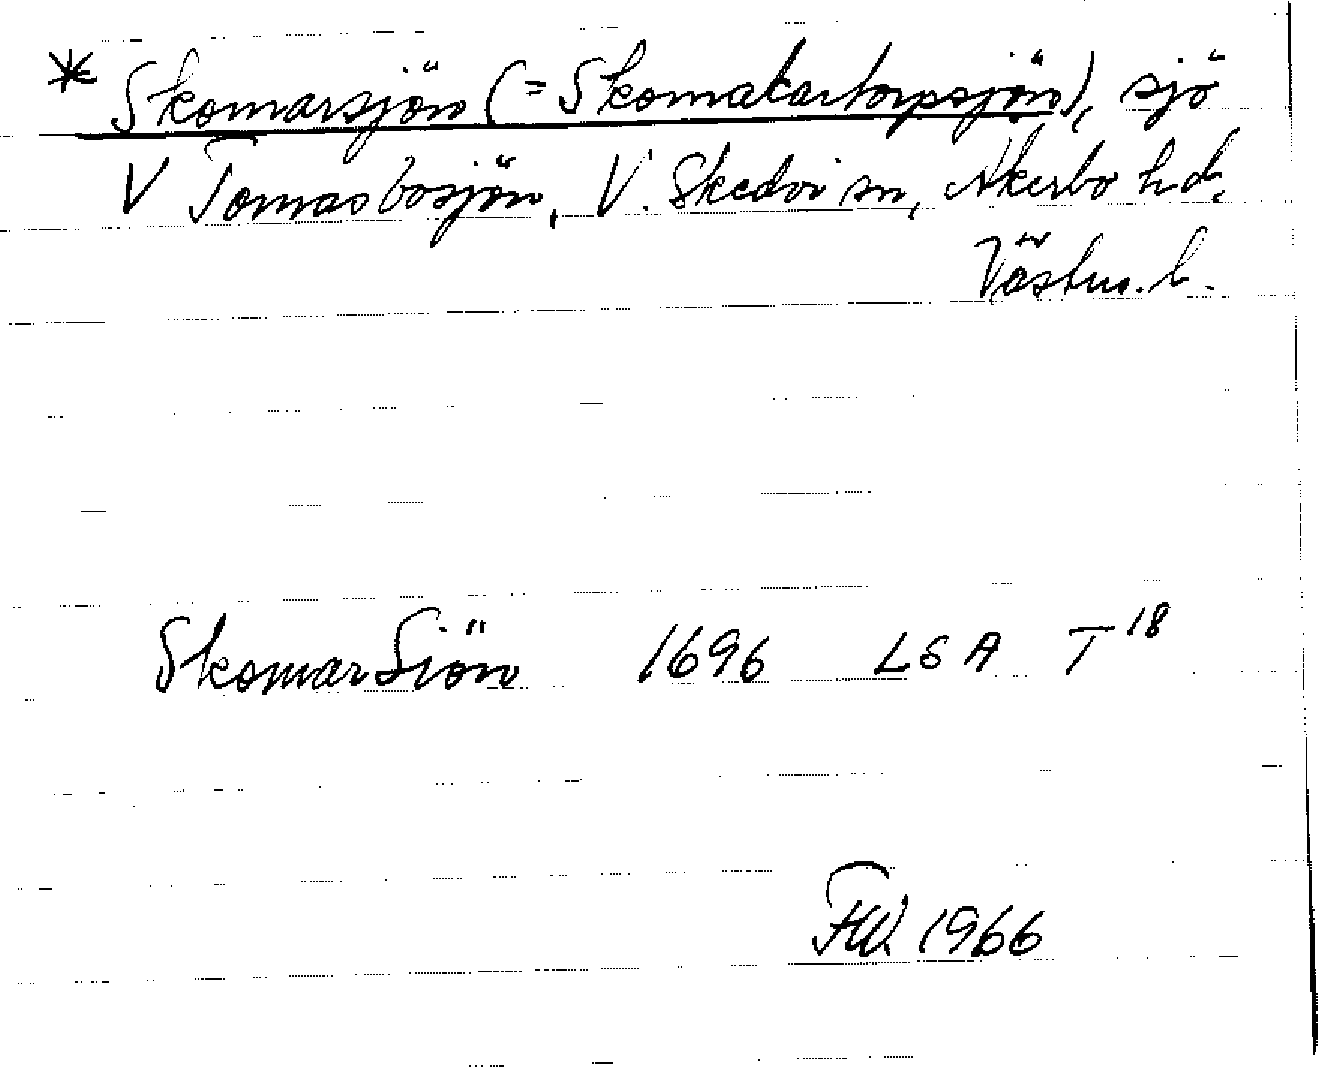 * Skomarsjön (= Skomakartorpsjön), sjö
V Tomasbosjön, V. Skedvi sn, Åkerbo hd,
Västm. l.
SkomarSiön 1696 LSA T 18
1966